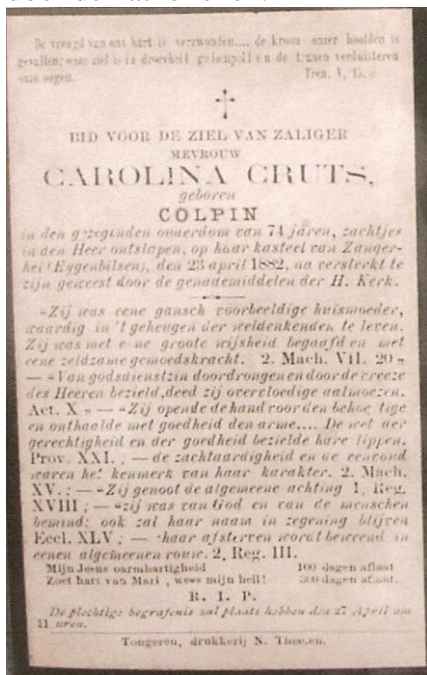 De vreugd van ons hart is verzwonden.... de kroon onzer hoofden is
gevallen; onze ziel is in droefheid gedompeld en de tranen verduisteren
onze oogen. Tren. V, 15.
BID VOOR DE ZIEL VAN ZALIGER
MEVROUW
CAROLINA CRUTS,
geboren
COLPIN
in den gezegenden ouderdom van 74 jaren, zachtjes
in den Heer ontslapen, op haar kasteel van Zanger-
hei (Eygenbilsen), den 23 april 1882, na versterkt te
zijn geweest door de genademiddelen der H. Kerk.
"Zij was eene gansch voorbeeldige huismoeder,
waardig in 't geheugen der weldenkenden te leven.
Zij was met eene groote wijsheid begaafd en met
eene zeldzame gemoedskracht. 2. Mach. VII. 20"
— "Van godsdienstzin doordrongen en door de vreeze
des Heeren bezield, deed zij overvloedige aalmoezen.
Act. X" — "Zij opende de hand voor den behoeftige
en onthaalde met goedheid den arme.... De wet der
gerechtigheid en der goedheid bezielde hare lippen.
Prov. XXI. ; — de zachtaardigheid en de eenvoud
waren het kenmerk van haar karakter. 2. Mach.
XV. ; — "Zij genoot de algemeene achting 1, Reg.
XVIII ; — "zij was van God en van de menschen
bemind; ook zal haar naam in zegening blijven
Eccl. XLV ; — haar afsterven wordt beweend in
eenen algemeenen rouw. 2, Reg. III.
Mijn Jesus barmhartigheid 100 dagen aflaat
Zoet hart van Mari , wees mijn heil! 300 dagen aflaat.
R. I. P.
De plechtige begrafenis zal plaats hebben den 27 April om
11 uren.
Tongeren, drukkerij N. Theelen.